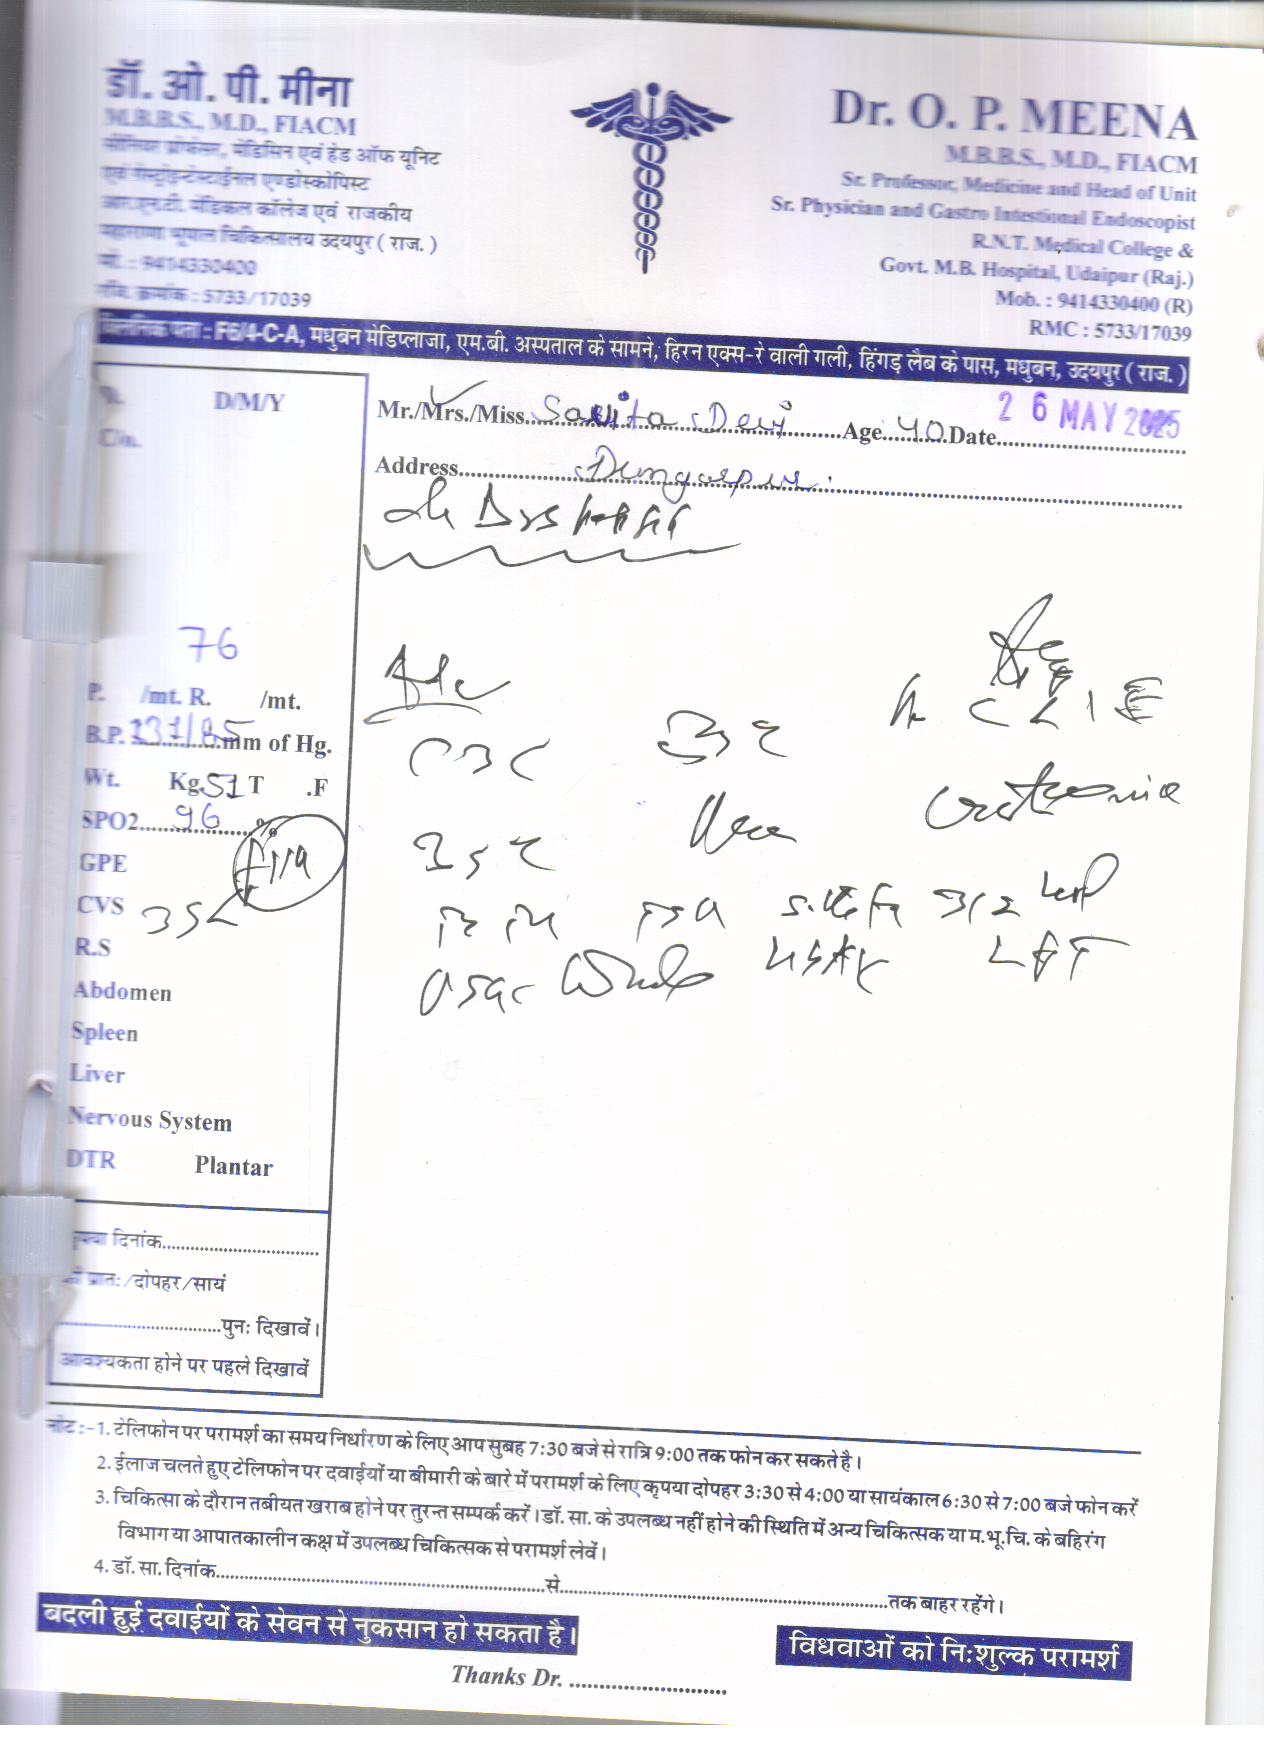 डॉ. ओ. पी. मीना
M.B.B.S., M.D., FIACM
सीनियर प्रोफेसर, मेडिसिन एवं हेड ऑफ यूनिट
एवं गेस्ट्रोइन्टेस्टाईनल एण्डोस्कोपिस्ट
आर.एन.टी. मेडिकल कॉलेज एवं राजकीय
महाराणा भूपाल चिकित्सालय उदयपुर ( राज. )
मो. : 9414330400
रजि. क्रमांक : 5733/17039
Dr. O. P. MEENA
M.B.B.S., M.D., FIACM
Sr. Professor, Medicine and Head of Unit
Sr. Physician and Gastro Intestional Endoscopist
R.N.T. Medical College &
Govt. M.B. Hospital, Udaipur (Raj.)
Mob. : 9414330400 (R)
RMC : 5733/17039
क्लिनिक पता : F6/4-C-A, मधुबन मेडिप्लाजा, एम.बी. अस्पताल के सामने, हिरन एक्स-रे वाली गली, हिंगड़ लैब के पास, मधुबन, उदयपुर ( राज. )
D/M/Y
C/o.
Mr./Mrs./Miss. Savita Devi Age 40 Date 26 MAY 2025
Address Dungarpur.
76
P. /mt. R. /mt.
B.P. 131/85 mm of Hg.
Wt. Kg. 51 T .F
SPO2 96 %
GPE
CVS
R.S
Abdomen
Spleen
Liver
Nervous System
DTR Plantar
CBC
Urea
LFT
कृपया दिनांक
को प्रात:/दोपहर/सायं
पुन: दिखावें।
आवश्यकता होने पर पहले दिखावें
नोट :-1. टेलिफोन पर परामर्श का समय निर्धारण के लिए आप सुबह 7:30 बजे से रात्रि 9:00 तक फोन कर सकते है।
2. ईलाज चलते हुए टेलिफोन पर दवाईयों या बीमारी के बारे में परामर्श के लिए कृपया दोपहर 3:30 से 4:00 या सायंकाल 6:30 से 7:00 बजे फोन करें
3. चिकित्सा के दौरान तबीयत खराब होने पर तुरन्त सम्पर्क करें। डॉ. सा. के उपलब्ध नहीं होने की स्थिति में अन्य चिकित्सक या म.भू.चि. के बहिरंग
विभाग या आपातकालीन कक्ष में उपलब्ध चिकित्सक से परामर्श लेवें।
4. डॉ. सा. दिनांक से तक बाहर रहेंगे।
बदली हुई दवाईयों के सेवन से नुकसान हो सकता है।
विधवाओं को नि:शुल्क परामर्श
Thanks Dr.